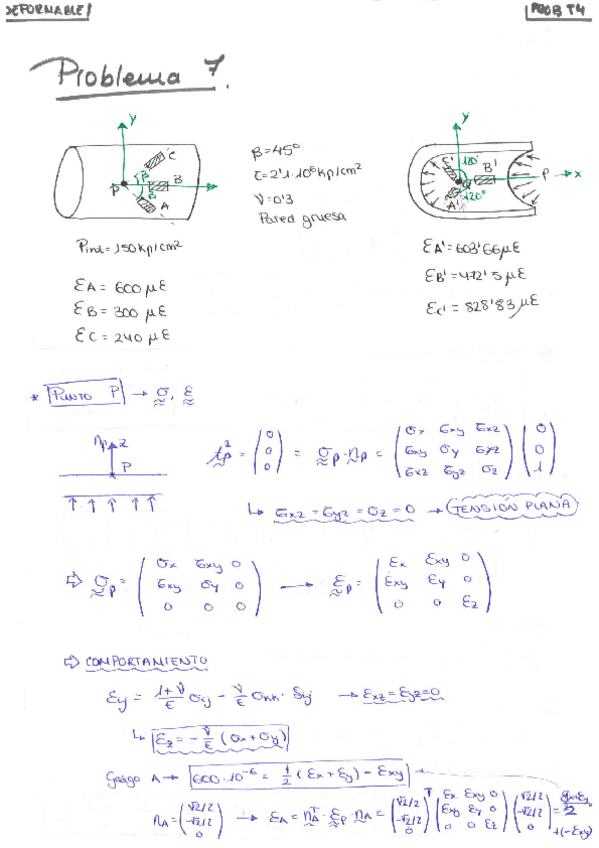 DEFORMABLE/
PROB T4
Problema 7.
y
C
β
B
P
β
A
Pint = 150 kp/cm²
εA = 600 με
εB = 300 με
εC = 240 με
β = 45°
E = 2'1·10⁶ kp/cm²
ν = 0'3
Pared gruesa
y
C' 120° B'
P → x
A' 120°
εA' = 603'66 με
εB' = 472'5 με
εC' = 828'83 με
* PUNTO P → σ, ε
np ↑ z
P
tp² = (0 0 0) = σp · np = (σx σxy σxz / σxy σy σyz / σxz σyz σz) (0 0 1)
↳ σxz = σyz = σz = 0 → TENSIÓN PLANA
⇒ σp = (σx σxy 0 / σxy σy 0 / 0 0 0) → εp = (εx εxy 0 / εxy εy 0 / 0 0 εz)
⇒ COMPORTAMIENTO
εij = 1+ν/E σij − ν/E σkk · δij → εxz = εyz = 0
↳ εz = −ν/E (σx + σy)
Galga A → 600·10⁻⁶ = 1/2 (εx + εy) − εxy
nA = (√2/2 −√2/2 0) → εA = nAᵀ · εp · nA = (√2/2 −√2/2 0)ᵀ (εx εxy 0 / εxy εy 0 / 0 0 εz) (√2/2 −√2/2 0) = εx+εy/2 + (−εxy)